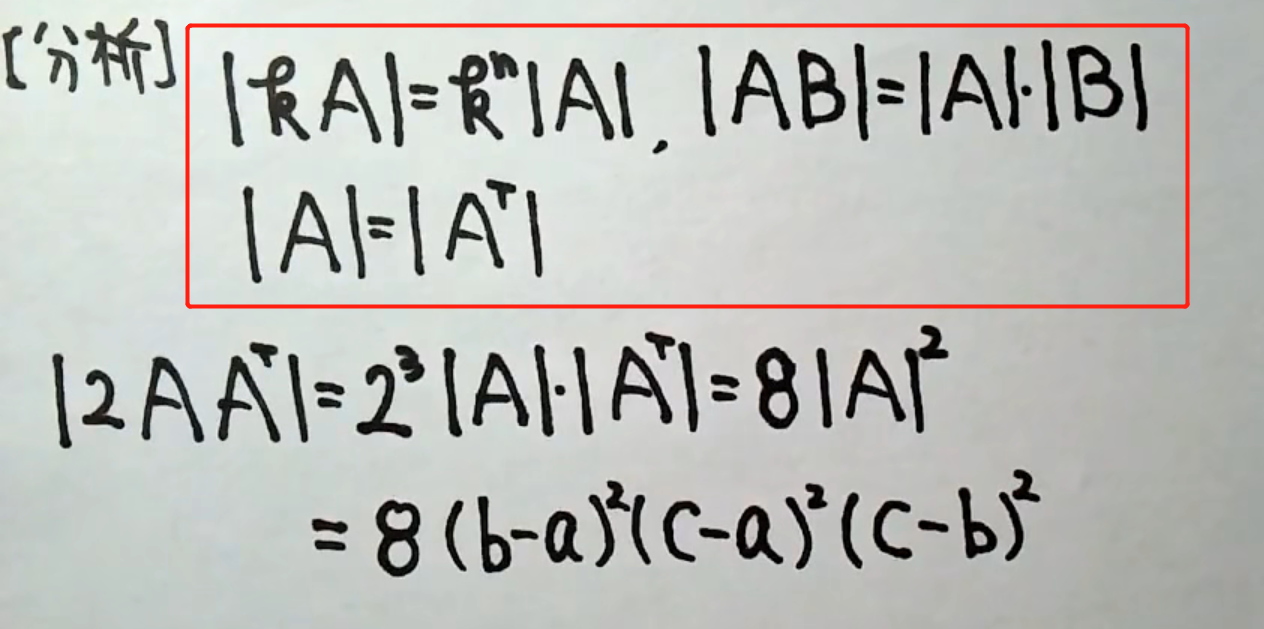 [分析] |kA|=kⁿ|A|, |AB|=|A|·|B|
|A|=|Aᵀ|
|2AAᵀ|=2³|A|·|Aᵀ|=8|A|²
=8(b-a)²(c-a)²(c-b)²